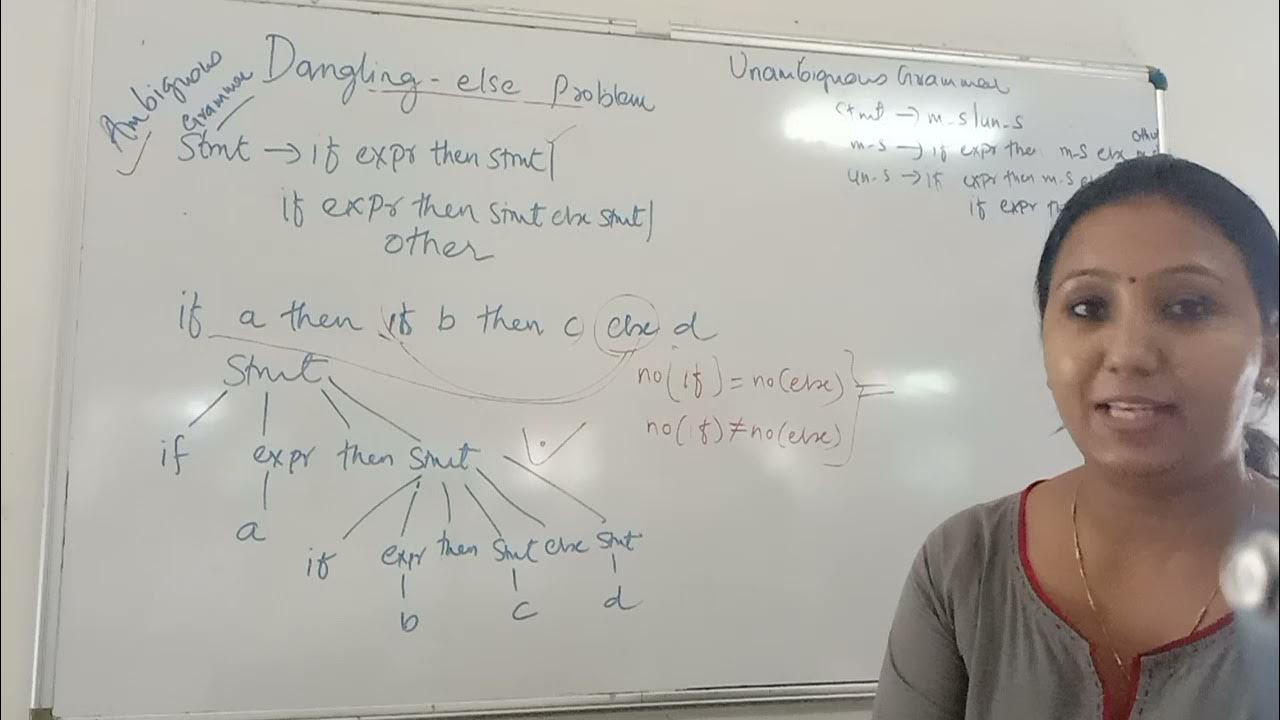 Ambiguous
Grammar
Dangling-else Problem
Stmt → if expr then stmt|
if expr then stmt else stmt|
other
if a then if b then c else d
Stmt
if expr then Stmt
a
if expr then Stmt else Stmt
b c d
no(if) = no(else)
no(if) ≠ no(else)
Unambiguous Grammar
stmt → m-s|un-s
m-s → if expr then m-s else
un-s → if expr then m-s
if expr